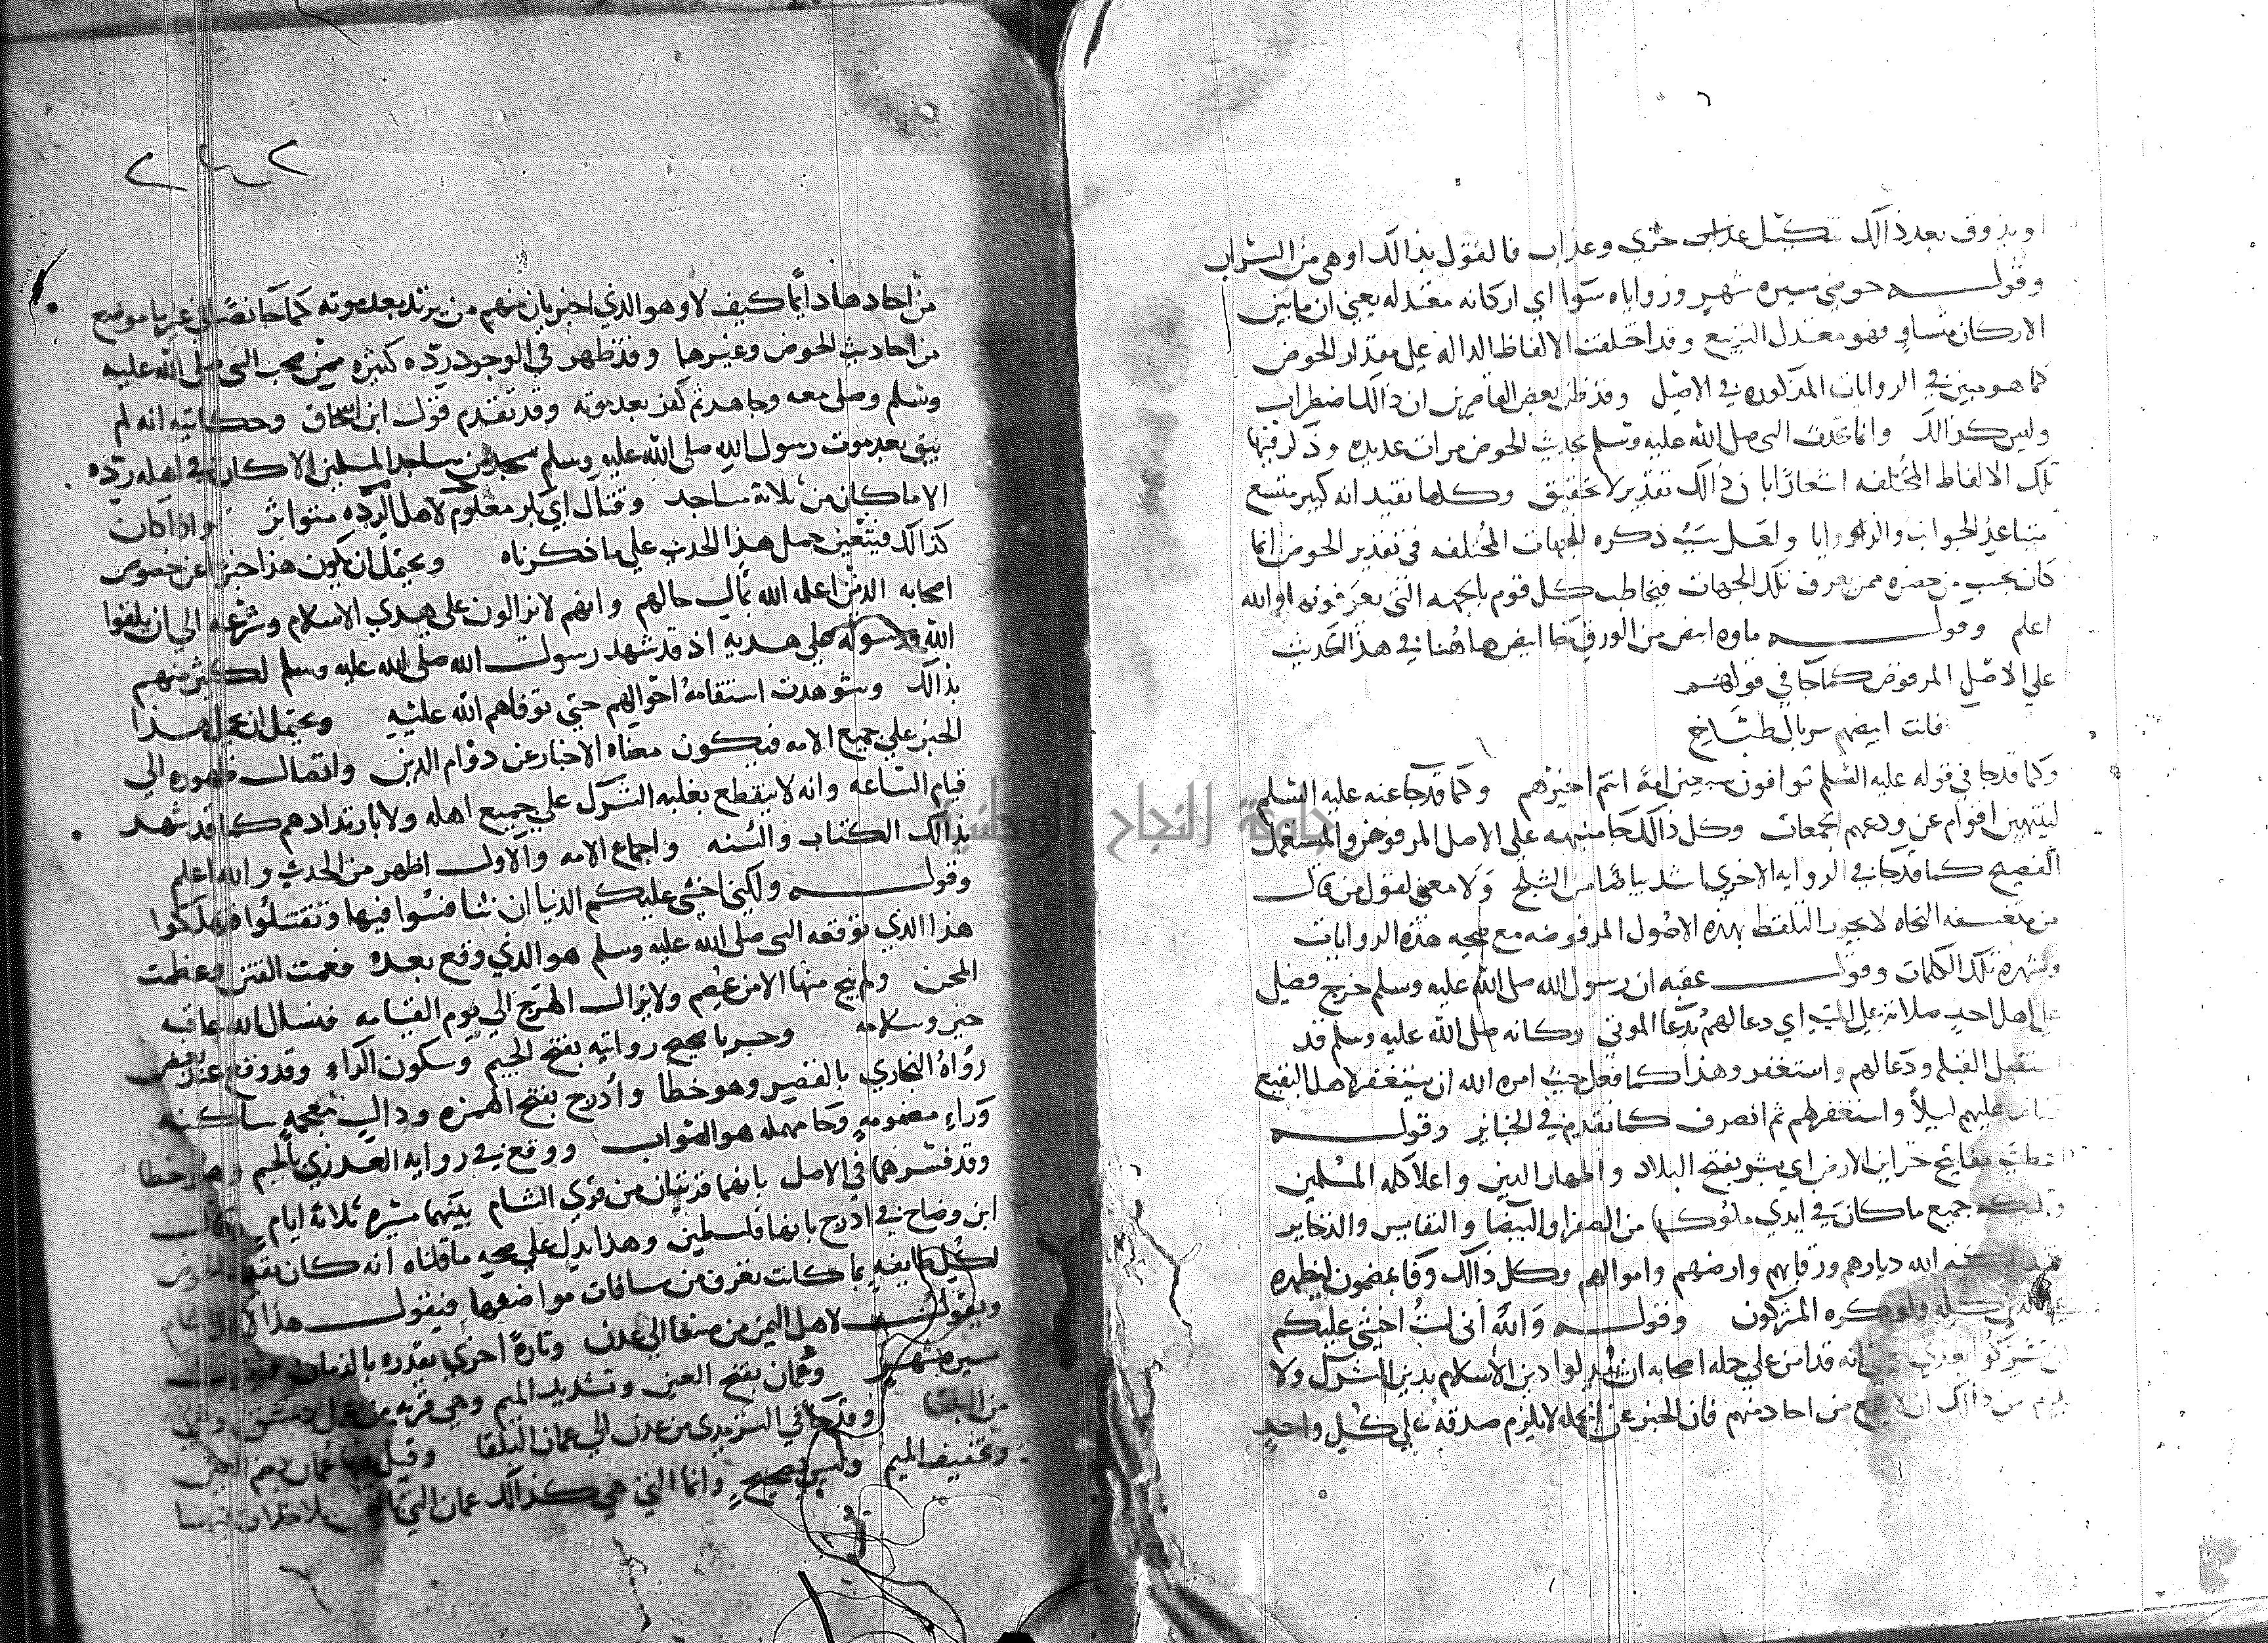 او يذوق بعد ذالك تنكيل عذاب خزي وعذاب فالقول بذالك اوهى من السراب
وقوله حوضي مسيره شهر وزواياه سوا اي اركانه معتدله يعني ان ما بين
الاركان متساو فهو معتدل التربيع وقد اختلفت الالفاظ الداله على مقدار الحوض
كما هو مبين في الروايات المذكوره في الاصل وقد ظن بعض القاصرين ان ذالك اضطراب
وليس كذالك وانما تحدث النبى صلى الله عليه وسلم بحديث الحوض مرات عديده وذكر فيها
تلك الالفاظ المختلفه اشعارا بان ذالك تقدير لا تحقيق وكلها تفيد انه كبير متسع
متباعد الجوانب والزوايا ولعل سبب ذكره للجهات المختلفه في تقدير الحوض انما
كان بحسب من حضره ممن يعرف تلك الجهات فيخاطب كل قوم بالجهه التي يعرفونها والله
اعلم وقوله ماوه ابيض من الورق جا ابيض هاهنا في هذا الحديث
على الاصل المرفوض كما جا في قولهم
فانت ابيضهم سربال طباخ
وكما قد جا في قوله عليه السلم توافون سبعين امة انتم اخيرهم وكما قد جا عنه عليه السلم
لينتهين اقوام عن ودعهم الجمعات وكل ذالك جا منبهه على الاصل المرفوض والمستعمل
الفصيح كما قد جا في الروايه الاخرى اشد بياضا من الثلج ولا معنى لقول من قال
من متعسفه النحاه لا يجوز التلفظ بهذه الاصول المرفوضه مع صحه هذه الروايات
وشهرة تلك الكلمات وقول عقبه ان رسول الله صلى الله عليه وسلم خرج فصلى
على اهل احد صلاته على الميت اي دعا لهم بدعا الموتى وكانه صلى الله عليه وسلم قد
استقبل القبله ودعا لهم واستغفر وهذا كما فعل حيث امره الله ان يستغفر لاهل البقيع
عليهم ليلا واستغفر لهم ثم انصرف كما تقدم في الجنايز وقوله
اعطيت مفاتيح خزاين الارض اي بشر بفتح البلاد واظهار الدين واعلا كلمه المسلمين
جميع ما كان في ايدي ملوكها من الصفرا والبيضا والنفايس والذخاير
الله ديارهم ورقابهم وارضهم واموالهم وكل ذالك وفا بمضمون ليظهره
على الدين كله ولو كره المشركون وقوله والله اني لست اخشى عليكم
ان تشركوا بعدي انه قد امن على جمله اصحابه ان يبدلوا دين الاسلام بدين الشرك ولا
يلزم من ذالك ان لا يقع من احاد منهم فان الخبر عن الجمله لا يلزم صدقه على كل واحد
٢٤٢
من احادها دايما كيف لا وهو الذي اخبر بان منهم من يرتد بعد موته كما جا نصا في غير ما موضع
من احاديث الحوض وغيرها وقد ظهر في الوجود رده كثيره ممن صحب النبى صلى الله عليه
وسلم وصلى معه وجاهد ثم كفر بعد موته وقد تقدم قول ابن اسحاق وحكايته انه لم
يبق بعد موت رسول الله صلى الله عليه وسلم مسجد من مساجد المسلمين الا كان في اهله رده
الا ما كان من ثلاثه مساجد وقتال ابي بكر معلوم لاهل الرده متواتر واذا كان
كذالك فيتعين حمل هذا الحديث على ما ذكرناه ويحتمل ان يكون هذا خبرا عن خصوص
اصحابه الذين اعلمه الله بمال حالهم وانهم لا يزالون على هدي الاسلام وشرعه الى ان يلقوا
الله ورسوله على هديه اذ قد شهد رسول الله صلى الله عليه وسلم لكثير منهم
بذالك وشوهدت استقامة احوالهم حتى توفاهم الله عليه ويحتمل ان يحمل هذا
الخبر على جميع الامه فيكون معناه الاخبار عن دوام الدين واتصال ظهوره الى
قيام الساعه وانه لا ينقطع بغلبه الشرك على جميع اهله ولا بارتدادهم كما قد شهد
بذالك الكتاب والسنه واجماع الامه والاول اظهر من الحديث والله اعلم
وقوله ولكني اخشى عليكم الدنيا ان تتنافسوا فيها وتقتتلوا فتهلكوا
هذا الذي توقعه النبى صلى الله عليه وسلم هو الذي وقع بعده فعمت الفتن وعظمت
المحن ولم ينج منها الا من عصم ولا يزال الهرج الى يوم القيامه فنسل الله عاقبه
خير وسلامه وجربا صحيح روايته بفتح الجيم وسكون الراء وقد وقع عند بعض
رواة البخاري بالقصر وهو خطا واذرح بفتح الهمزه وذال معجمه ساكنه
وراء مضمومه وحا مهمله هو الصواب ووقع في روايه العذري بالجيم وهو خطا
وقد فسرهما في الاصل بانهما قريتان من قرى الشام بينهما مسيره ثلاثة ايام
ابن وضاح في اذرح بانها فلسطين وهذا يدل على صحه ما قلناه انه كان يقدر الحوض
لكل طايفه بما كانت تعرف من مسافات مواضعها فيقول هذا لاهل الشام
ويقول لاهل اليمن من صنعا الى عدن وتارة اخرى يقدره بالزمان فيقول
مسيره شهر وعمان بفتح العين وتشديد الميم وهي قريه من عمل دمشق
من البلقا وقد جا في الترمذى من عدن الى عمان البلقا وقيل فيها عمان بضم العين
وتخفيف الميم وليس بصحيح وانما التي هي كذالك عمان التي باليمن بلا خلاف فيها